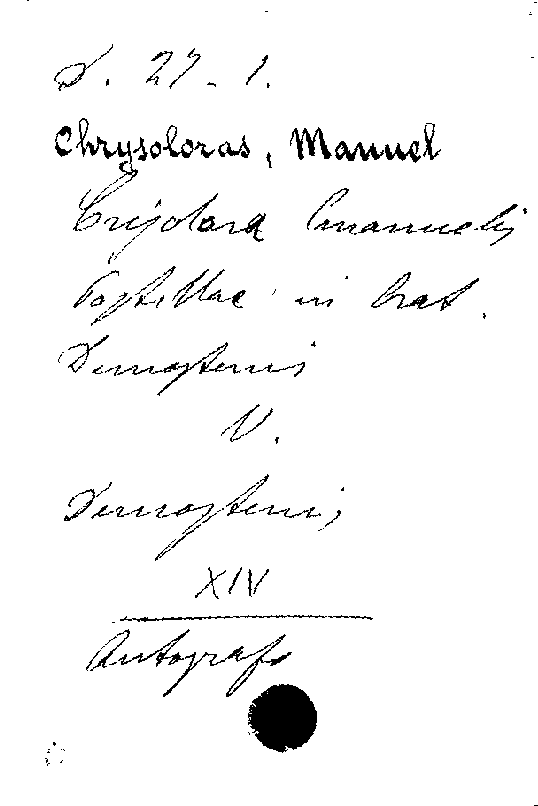 D. 27-1.
Chrysoloras, Manuel
Crisolara Emanuelis
Postillae in Orat.
Demostenis
V.
Demostenis
XIV
Autografo